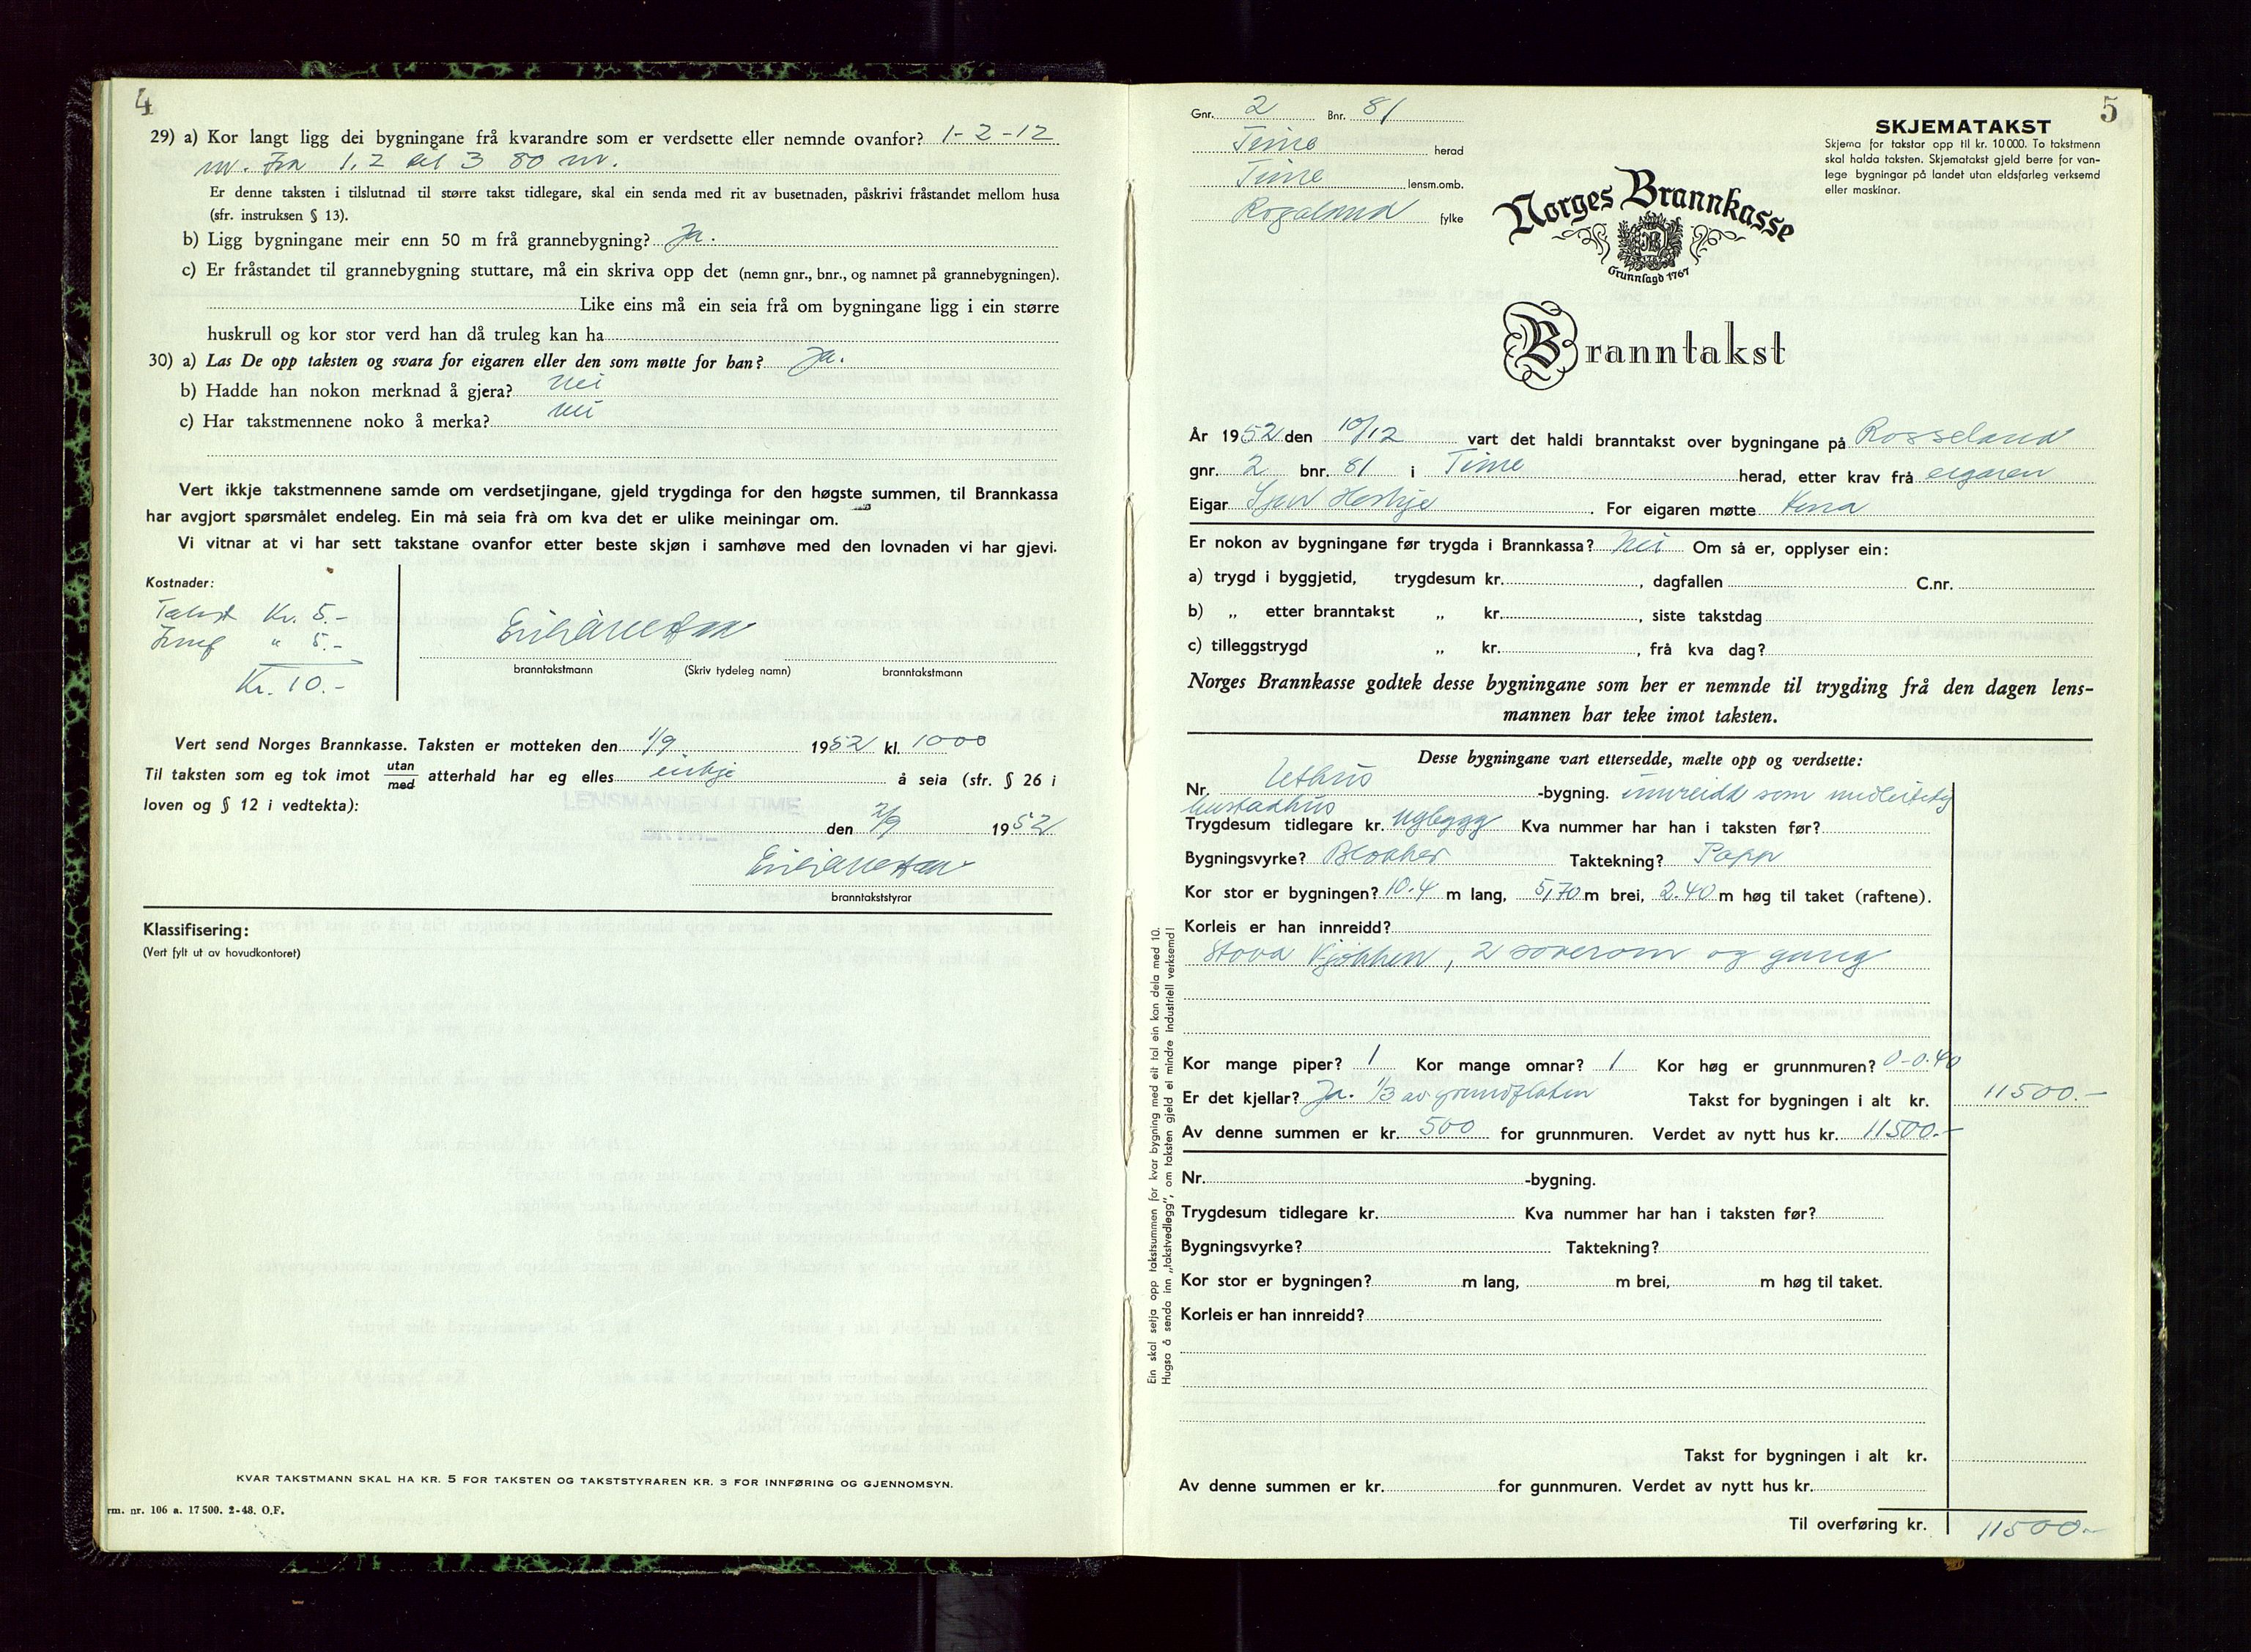 4
29) a) Kor langt ligg dei bygningane frå kvarandre som er verdsette eller nemnde ovanfor? 1-2-12
m. Fra 1,2 til 3 80 m.
Er denne taksten i tilslutnad til større takst tidlegare, skal ein senda med rit av busetnaden, påskrivi fråstandet mellom husa
(sfr. instruksen § 13).
b) Ligg bygningane meir enn 50 m frå grannebygning? Ja.
c) Er fråstandet til grannebygning stuttare, må ein skriva opp det (nemn gnr., bnr., og namnet på grannebygningen).
Like eins må ein seia frå om bygningane ligg i ein større
huskrull og kor stor verd han då truleg kan ha
30) a) Las De opp taksten og svara for eigaren eller den som møtte for han? Ja.
b) Hadde han nokon merknad å gjera? nei
c) Har takstmennene noko å merka? nei
Vert ikkje takstmennene samde om verdsetjingane, gjeld trygdinga for den høgste summen, til Brannkassa
har avgjort spørsmålet endeleg. Ein må seia frà om kva det er ulike meiningar om.
Vi vitnar at vi har sett takstane ovanfor etter beste skjøn i samhøve med den lovnaden vi har gjevi.
Kostnader:
Takst Kr. 5.-
" 5.-
Kr. 10.-
branntakstmann (Skriv tydeleg namn) branntakstmann
Vert send Norges Brannkasse. Taksten er motteken den 1/9 1952 kl. 1000
Til taksten som eg tok imot utan/med atterhald har eg elles eikkje å seia (sfr. § 26 i
loven og § 12 i vedtekta):
LENSMANNEN I TIME
den 2/9 1952
branntakststyrar
Klassifisering:
(Vert fylt ut av hovudkontoret)
KVAR TAKSTMANN SKAL HA KR. 5 FOR TAKSTEN OG TAKSTSTYRAREN KR. 3 FOR INNFØRING OG GJENNOMSYN.
rm. nr. 106 a. 17 500. 2-48. O.F.
5
Gnr. 2 Bnr. 81
Time herad
Time lensm.omb.
Rogaland fylke
SKJEMATAKST
Skjema for takstar opp til kr. 10 000. To takstmenn
skal halda taksten. Skjematakst gjeld berre for van-
lege bygningar på landet utan eldsfarleg verksemd
eller maskinar.
Norges Brannkasse
Grunnlagd 1767
Branntakst
År 1952 den 10/12 vart det haldi branntakst over bygningane på Rosseland
gnr. 2 bnr. 81 i Time herad, etter krav frå eigaren
Eigar For eigaren møtte
Er nokon av bygningane før trygda i Brannkassa? Nei Om så er, opplyser ein:
a) trygd i byggjetid, trygdesum kr. , dagfallen C.nr.
b) „ etter branntakst „ kr. , siste takstdag
c) tilleggstrygd „ kr. , frå kva dag?
Norges Brannkasse godtek desse bygningane som her er nemnde til trygding frå den dagen lens-
mannen har teke imot taksten.
Desse bygningane vart ettersedde, mælte opp og verdsette:
Nr. Uthus -bygning. innreidd som midlertidig
bustadhus
Trygdesum tidlegare kr. nybygg Kva nummer har han i taksten før?
Bygningsvyrke? Blokker Taktekning? Papp
Kor stor er bygningen? 10.4 m lang, 5,70 m brei, 2.40 m høg til taket (raftene).
Korleis er han innreidd?
Stova Kjøkken, 2 soverom og gang
Kor mange piper? 1 Kor mange omnar? 1 Kor høg er grunnmuren? 0-0.40
Er det kjellar? Ja. 1/3 av grundflaten Takst for bygningen i alt kr. 11500.-
Av denne summen er kr. 500 for grunnmuren. Verdet av nytt hus kr. 11500.-
Nr. -bygning.
Trygdesum tidlegare kr. Kva nummer har han i taksten før?
Bygningsvyrke? Taktekning?
Kor stor er bygningen? m lang, m brei, m høg til taket.
Korleis er han innreidd?
Takst for bygningen i alt kr.
Av denne summen er kr. for gunnmuren. Verdet av nytt hus kr.
Til overføring kr. 11500.-
Ein skal setja opp takstsummen for kvar bygning med eit tal ein kan dela med 10.
Hugsa å senda inn „takstvedlegg", om taksten gjeld ei mindre industriell verksemd!